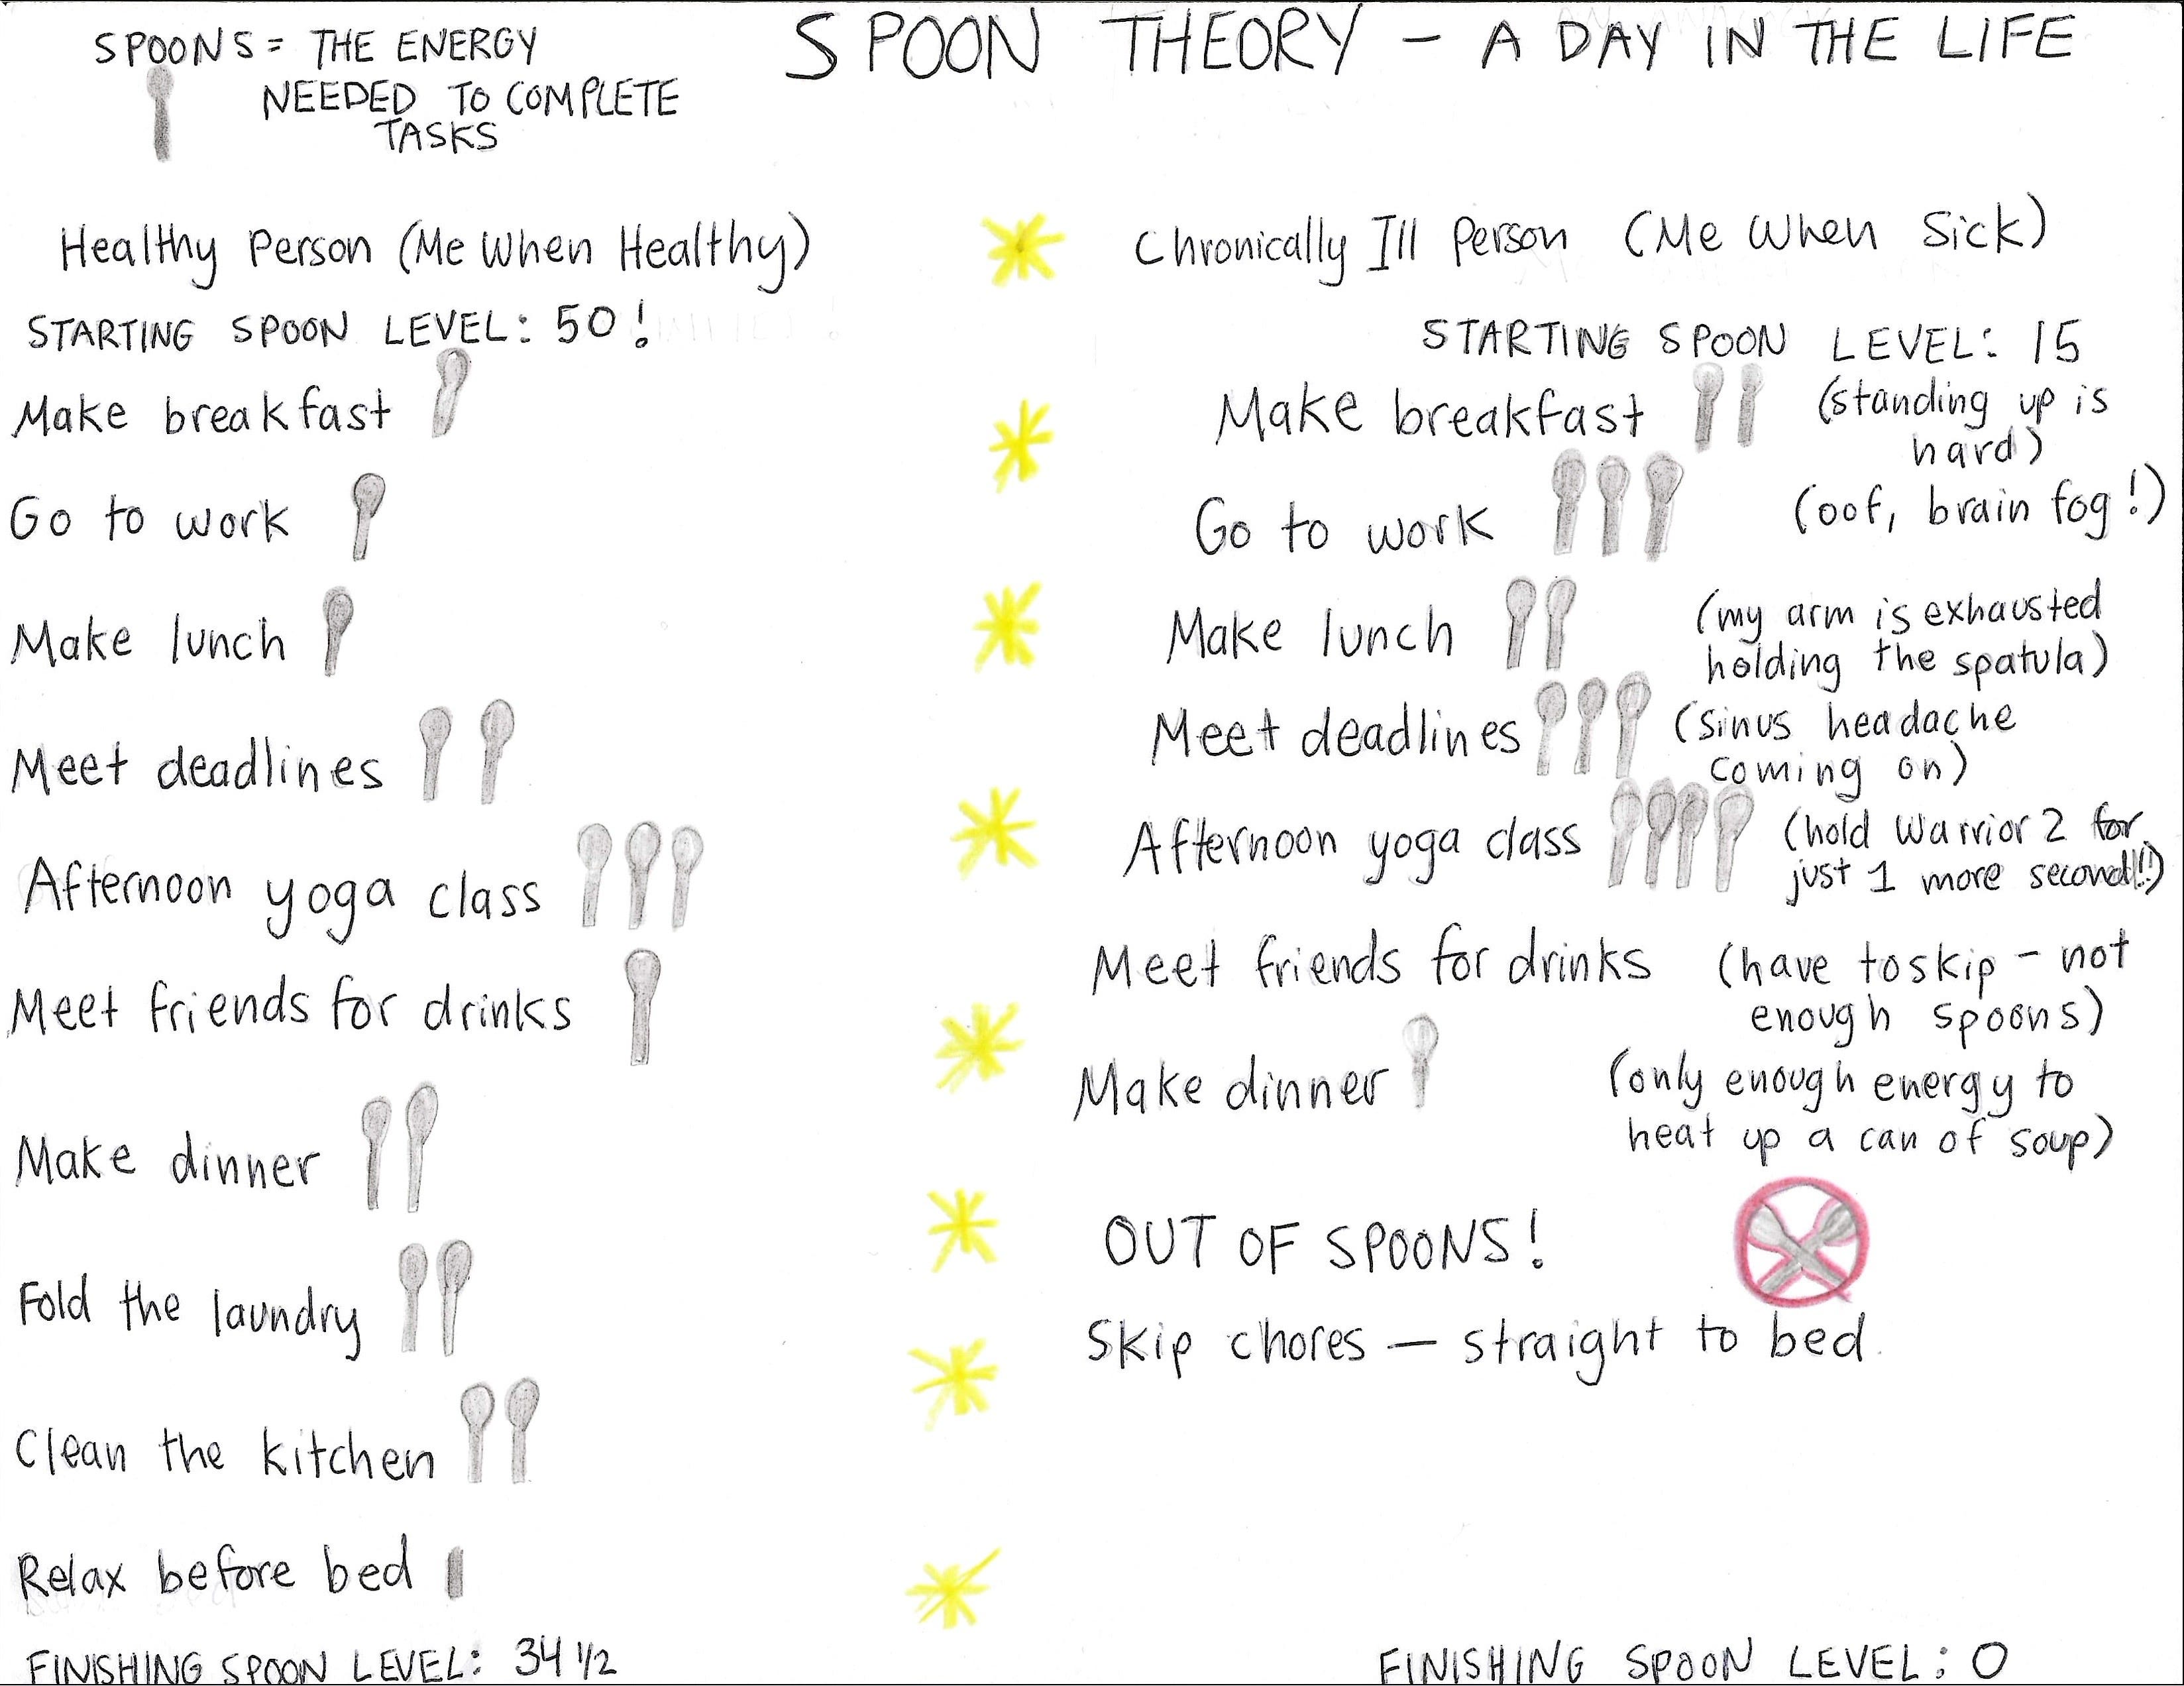 SPOONS = THE ENERGY
NEEDED TO COMPLETE
TASKS
SPOON THEORY - A DAY IN THE LIFE
Healthy Person (Me When Healthy)
STARTING SPOON LEVEL: 50!
Make breakfast
Go to work
Make lunch
Meet deadlines
Afternoon yoga class
Meet friends for drinks
Make dinner
Fold the laundry
Clean the kitchen
Relax before bed
FINISHING SPOON LEVEL: 34 1/2
Chronically Ill Person (Me When Sick)
STARTING SPOON LEVEL: 15
Make breakfast (standing up is
hard)
Go to work (oof, brain fog!)
Make lunch (my arm is exhausted
holding the spatula)
Meet deadlines (sinus headache
coming on)
Afternoon yoga class (hold Warrior 2 for
just 1 more second!!)
Meet friends for drinks (have to skip - not
enough spoons)
Make dinner (only enough energy to
heat up a can of soup)
OUT OF SPOONS!
Skip chores - straight to bed
FINISHING SPOON LEVEL: 0